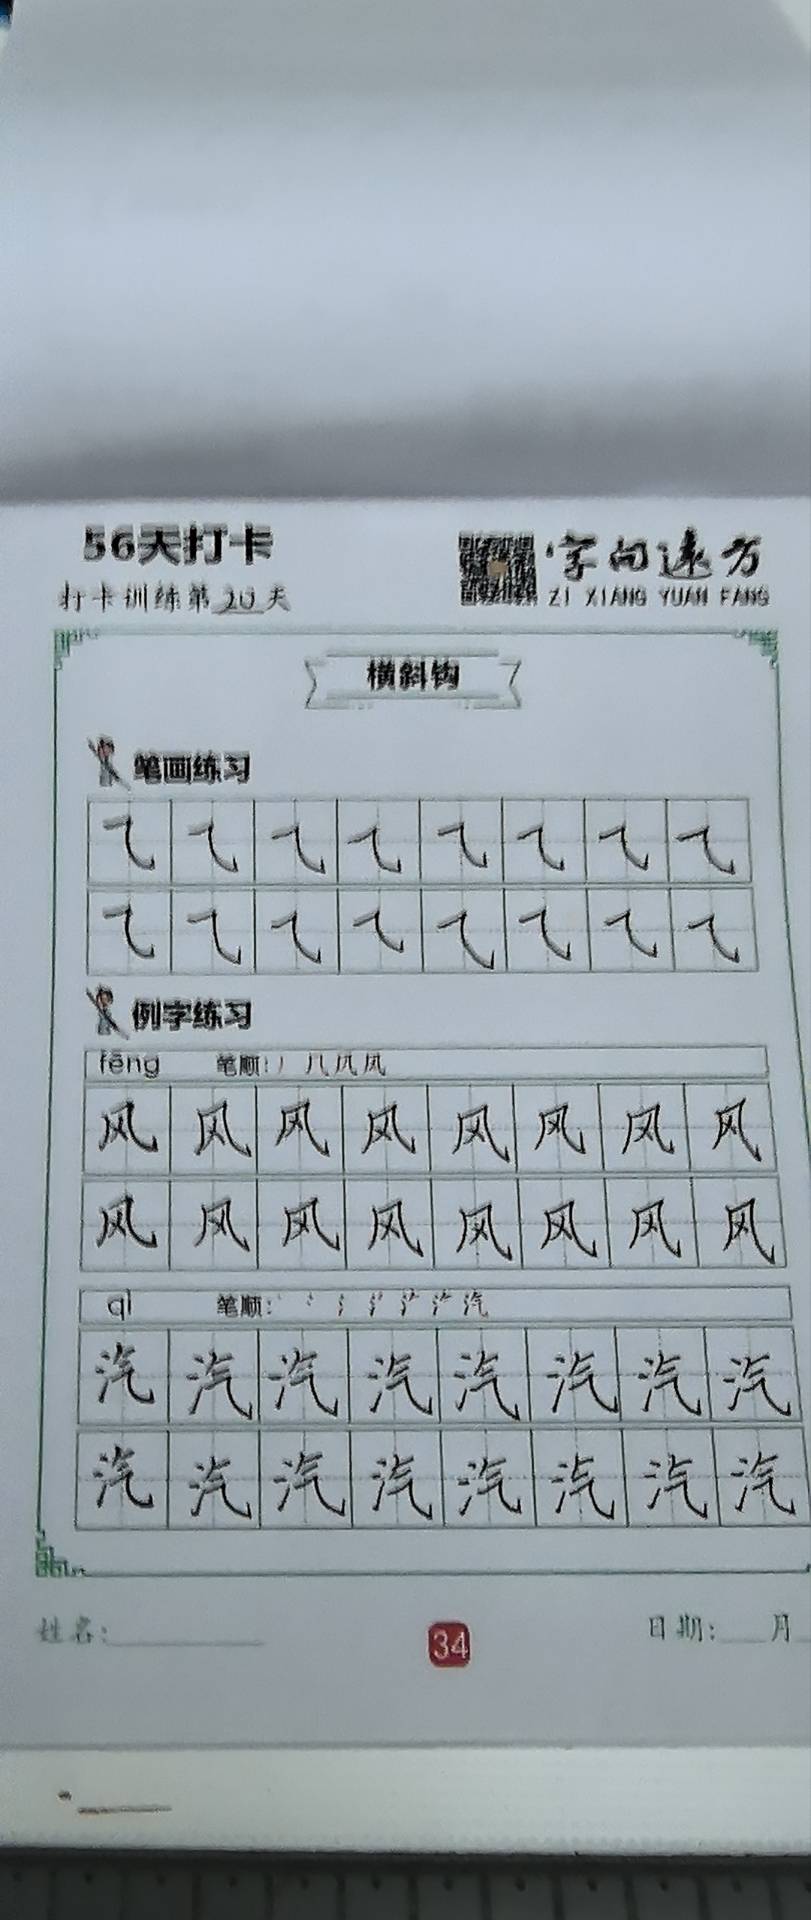 56天打卡
字向远方
打卡训练第20天
ZI XIANG YUAN FANG
横斜钩
笔画练习
乁 乁 乁 乁 乁 乁 乁 乁
乁 乁 乁 乁 乁 乁 乁 乁
例字练习
fēng 笔顺: 丿 几 凤 风
风 风 风 风 风 风 风 风
风 风 风 风 风 风 风 风
qì 笔顺: 汽
汽 汽 汽 汽 汽 汽 汽 汽
汽 汽 汽 汽 汽 汽 汽 汽
姓名: 34 日期: 月